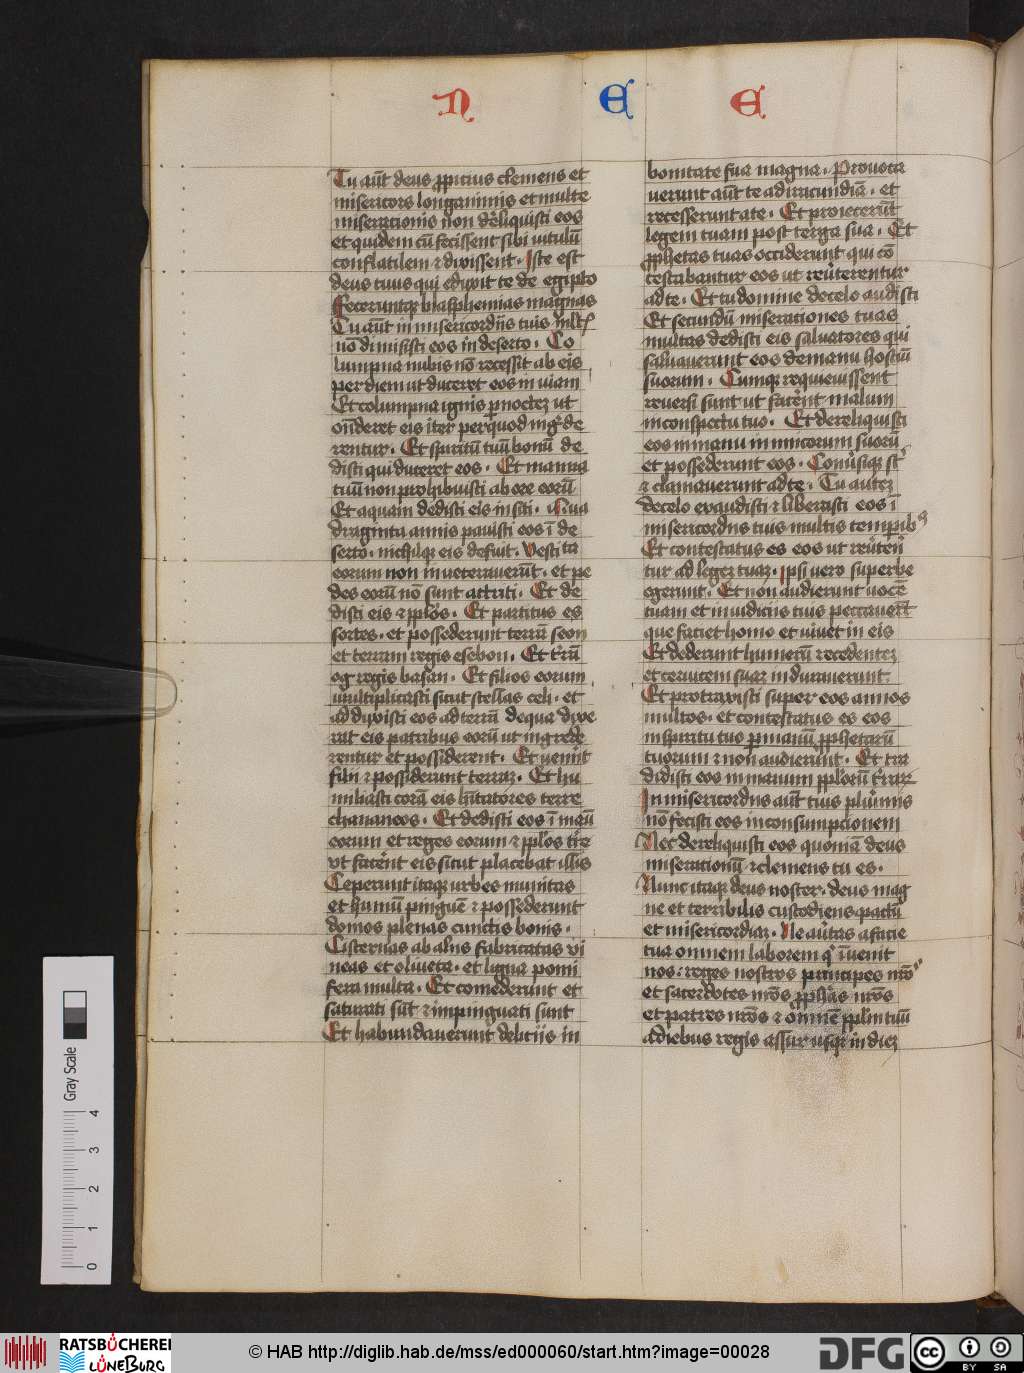 N E E
Tu aūt deus ꝓpicius clemens et
misericors longanimis et multe
miseracionis non deliquisti eos
et quidem cū fecissent sibi vitulū
conflatilem ⁊ dixissent. Iste est
deus tuus qui eduxit te de egipto
Feceruntqꝫ blasphemias magnas
Tu aūt in misericordiis tuis mltꝭ
nō dimisisti eos in deserto. Co
lumpna nubis nō recessit ab eis
per diem ut duceret eos in viam
Et columpna ignis ꝑ noctem ut
ōnderet eis iter per quod ingͥde
rentur. Et spiritū tuū bonū de
disti qui duceret eos. Et manna
tuū non prohibuisti ab ore eorū
Et aquam dedisti eis in siti. Qua
draginta annis pauisti eos ī de
serto. nichilqꝫ eis defuit. Vesti ta
eorum non inveteraverūt. et pe
des eorū nō sunt attriti. Et de
disti eis ⁊ pplōs. Et partitus es
sortes. et possederunt terrā seon
et terram regis esebon. Et trā̄
og regis basan. Et filios eorum
multiplicasti sicut stellas celi. et
adduxisti eos ad terrā de qua dixe
rat eis patribus eorū ut ingrede
rentur et possiderent. Et venēnt
filii ⁊ possiderunt terraꝫ. Et hu
miliasti corā eis hītatores terre
chananeos. Et dedisti eos ī manū
eorum et reges eorum ⁊ pplōs tre
Vt facēnt eis sicut placebat illis
Ceperunt itaqꝫ urbes munitas
et humū pinguē ⁊ possederunt
domos plenas cunctis bonis.
Cisternas ab aliis fabricatas vi
neas et oliveta. et ligna pomi
fera multa. Et comederunt et
saturati sūt ⁊ impinguati sunt
Et habundaverunt deliciis in
bonitate sua magna. Provoca
verunt aūt te ad iracundiā. et
recesserunt a te. Et proiecerūt
legem tuam post terga sua. Et
ꝓphetas tuas occiderunt qui cō
testabantur eos ut reūterentur
ad te. Et tu domine de celo audisti
Et secundū miseraciones tuas
multas dedisti eis salvatores qui
salvaverunt eos de manu hostiū
suorum. Cumqꝫ requievissent
reversi sunt ut facēnt malum
in conspectu tuo. Et dereliquisti
eos in manu inimicorum suorū
et possederunt eos. Conūsiqꝫ sͭ
⁊ clamaverunt ad te. Tu auteꝫ
de celo exaudisti ⁊ liberasti eos ī
misericordiis tuis multis tempibꝰ
Et contestatus es eos ut reūten
tur ad legeꝫ tuaꝫ. Ipsi vero superbe
egerunt. Et non audierunt vocē
tuam et in iudiciis tuis peccaverūt
que faciet homo et vivet in eis
Et dederunt humerū recedenteꝫ
et cervicem suaꝫ induraverunt
Et protraxisti super eos annos
multos. et contestatus es eos
in spiritu tuo ꝑ manū ꝓphetarū
tuorum ⁊ non audierunt. Et tra
didisti eos in manum pplorū tr̄raꝝ
In misericordiis aūt tuis plūmis
nō fecisti eos in consumpcionem
Nec dereliquisti eos quoniā deus
miseracionū ⁊ clemens tu es.
Nunc itaqꝫ deus noster. deus mag
ne et terribilis custodiens pactū
et misericordiaꝫ. Ne avtas a facie
tua omnem laborem qͥ īvenit
nos: reges nostros principes nrōs
et sacerdotes nrōs ꝓphās nrōs
et patres nrōs ⁊ ōmnē pplm tuū
a diebus regis assur usqꝫ in dieꝫ
Gray Scale
0 1 2 3 4
RATSBÜCHEREI
LÜNEBURG
© HAB http://diglib.hab.de/mss/ed000060/start.htm?image=00028
DFG
cc BY SA